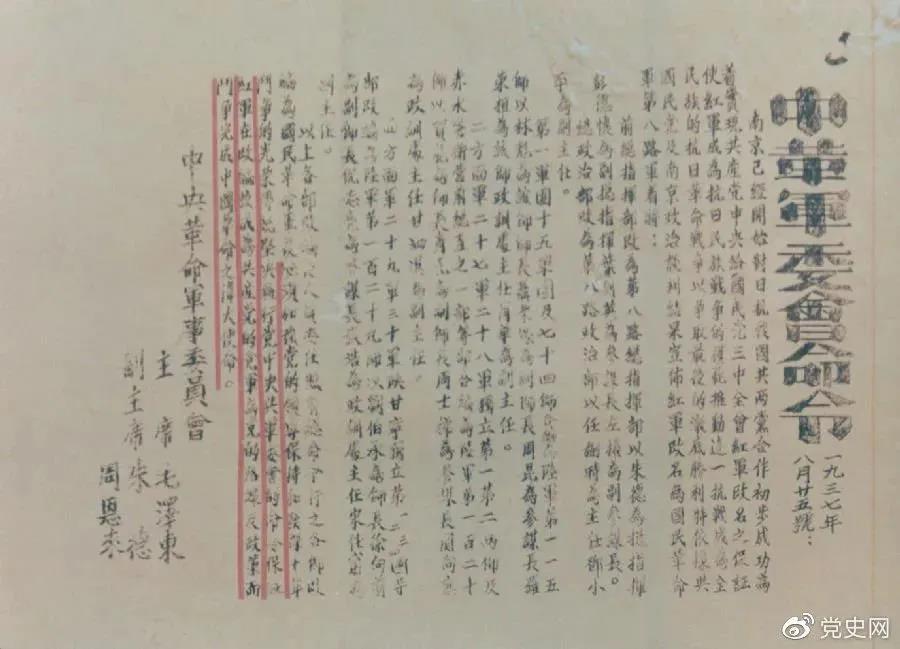 中革軍委會命令
一九三七年
八月廿五號：
南京已經開始對日抗戰國共兩黨合作初步成功為
著實現共產党中央給國民党三中全會紅軍改名之保証
使紅軍成為抗日民族戰爭的模範推動這一抗戰成為全
民族的抗日革命戰爭以爭取最後的澈底勝利特依據與
國民党及南京政治談判結果宣佈紅軍改名為國民革命
軍第八路軍着將：
前總指揮部改為第八路總指揮部以朱德為總指揮
彭德懷為副總指揮葉劍英為參謀長左權為副參謀長。
總政治部改為第八路政治部以任弼時為主任鄧小
平為副主任。
第一軍團十五軍團及七十四師合編為陸軍第一一五
師以林彪為該師師長聶榮臻為副師長周昆為參謀長羅
榮桓為該師政訓處主任蕭華為副主任。
二方面軍二十七軍二十八軍獨立第一第二兩師及
赤水警衛營前總直之一部等部合編為陸軍第一百二十
師以賀龍為師長蕭克為副師長周士第為參謀長關向應
為政訓處主任甘泗淇為副主任。
四方面軍二十九軍三十軍陝甘寧獨立第一二三四等
部改編為陸軍第一百二十九師以劉伯承為師長徐向前
為副師長倪志亮為參謀長張浩為政訓處主任宋任窮為
副主任。
以上各部改編後人員委任照前總命令行之各部改
編為國民革命軍後必須加強党的領導保持和發揮十年
鬥爭的光榮傳統堅決執行党中央與軍委會的命令保証
紅軍在改編後成為共產党的党軍為党的路線及政策而
鬥爭完成中國革命之偉大使命。
中央革命軍事委員會
主席毛澤東
副主席朱德
周恩来
党史网